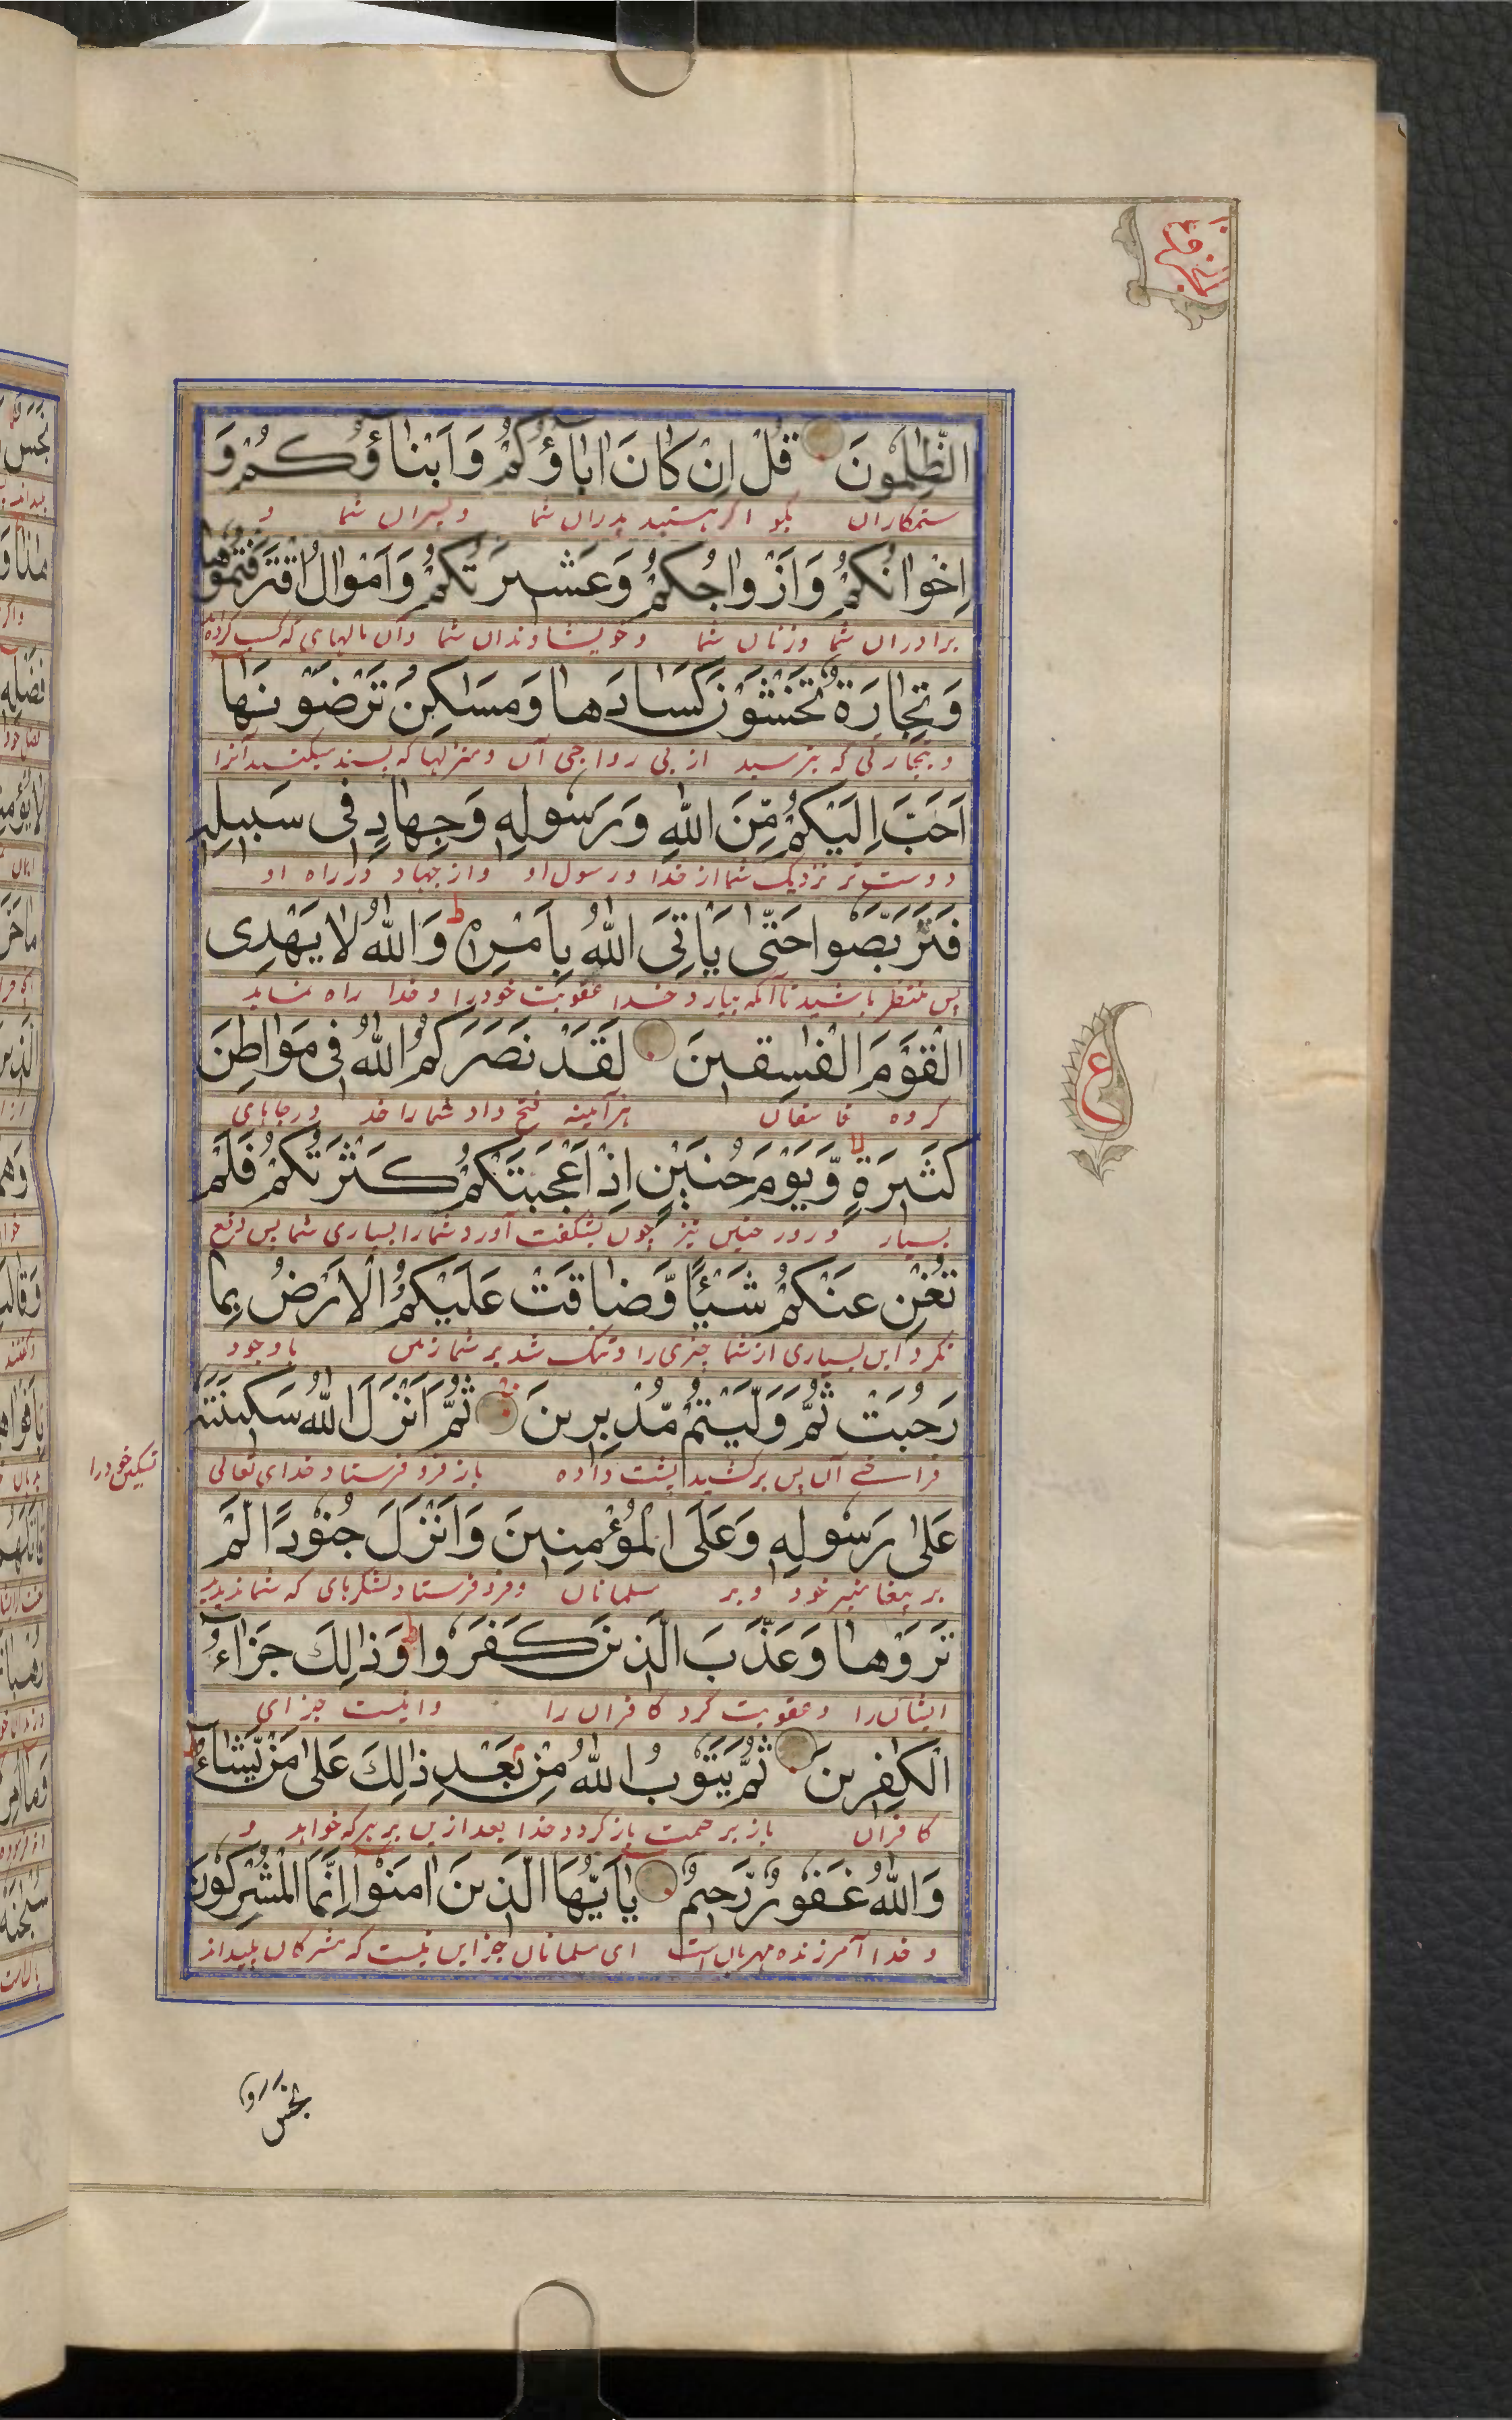 الظّٰلِمُونَ قُلْ اِنْ كَانَ اٰبَآؤُكُمْ وَاَبْنَآؤُكُمْ وَ
ستمکاران بگو اگر هستید پدران شما و پسران شما و
اِخْوَانُكُمْ وَاَزْوَاجُكُمْ وَعَشِيرَتُكُمْ وَاَمْوَالُ اقْتَرَفْتُمُوهَا
برادران شما وزنان شما و خویشاوندان شما وآن مالهای که کسب کرده
وَتِجَارَةٌ تَخْشَوْنَ كَسَادَهَا وَمَسٰكِنُ تَرْضَوْنَهَا
و تجارتی که بترسید از بی رواجی آن و منزلها که پسند میکنید آنرا
اَحَبَّ اِلَيْكُمْ مِّنَ اللّٰهِ وَرَسُولِهٖ وَجِهَادٍ فِى سَبِيلِهٖ
دوست تر نزدیک شما از خدا و رسول او و از جهاد در راه او
فَتَرَبَّصُوا حَتّٰى يَاْتِىَ اللّٰهُ بِاَمْرِهٖ ط وَاللّٰهُ لَا يَهْدِى
پس منتظر باشید تا آنکه بیارد خدا عقوبت خود را و خدا راه ننماید
الْقَوْمَ الْفٰسِقِينَ لَقَدْ نَصَرَكُمُ اللّٰهُ فِى مَوَاطِنَ
گروه فاسقان هرآینه فتح داد شما را خدا در جاهای
كَثِيرَةٍ لا وَّيَوْمَ حُنَيْنٍ اِذْ اَعْجَبَتْكُمْ كَثْرَتُكُمْ فَلَمْ
بسیار و روز حنین نیز چون بشگفت آورد شما را بسیاری شما پس دفع
تُغْنِ عَنْكُمْ شَيْئًا وَّضَاقَتْ عَلَيْكُمُ الْاَرْضُ بِمَا
نکرد این بسیاری از شما چیزی را و تنگ شد بر شما زمین باوجود
رَحُبَتْ ثُمَّ وَلَّيْتُمْ مُّدْبِرِينَ ثُمَّ اَنْزَلَ اللّٰهُ سَكِينَتَهٗ
فراخی آن پس برگشتید پشت داده باز فرو فرستاد خدای تعالی
تسکین خود را
عَلٰى رَسُولِهٖ وَعَلَى الْمُؤْمِنِينَ وَاَنْزَلَ جُنُودًا لَّمْ
بر پیغامبر خود و بر مسلمانان و فرو فرستاد لشکرهای که شما ندیدید
تَرَوْهَا وَعَذَّبَ الَّذِينَ كَفَرُوا ط وَذٰلِكَ جَزَآءُ
ایشان را و عقوبت کرد کافران را و اینست جزای
الْكٰفِرِينَ ثُمَّ يَتُوبُ اللّٰهُ مِنْ بَعْدِ ذٰلِكَ عَلٰى مَنْ يَّشَآءُ ط
کافران باز برحمت باز گردد خدا بعد ازین بر هرکه خواهد و
وَاللّٰهُ غَفُورٌ رَّحِيمٌ يٰاَيُّهَا الَّذِينَ اٰمَنُوا اِنَّمَا الْمُشْرِكُونَ
و خدا آمرزنده مهربان است ای مسلمانان جز این نیست که مشرکان پلیداند
ع
نَجَسٌ